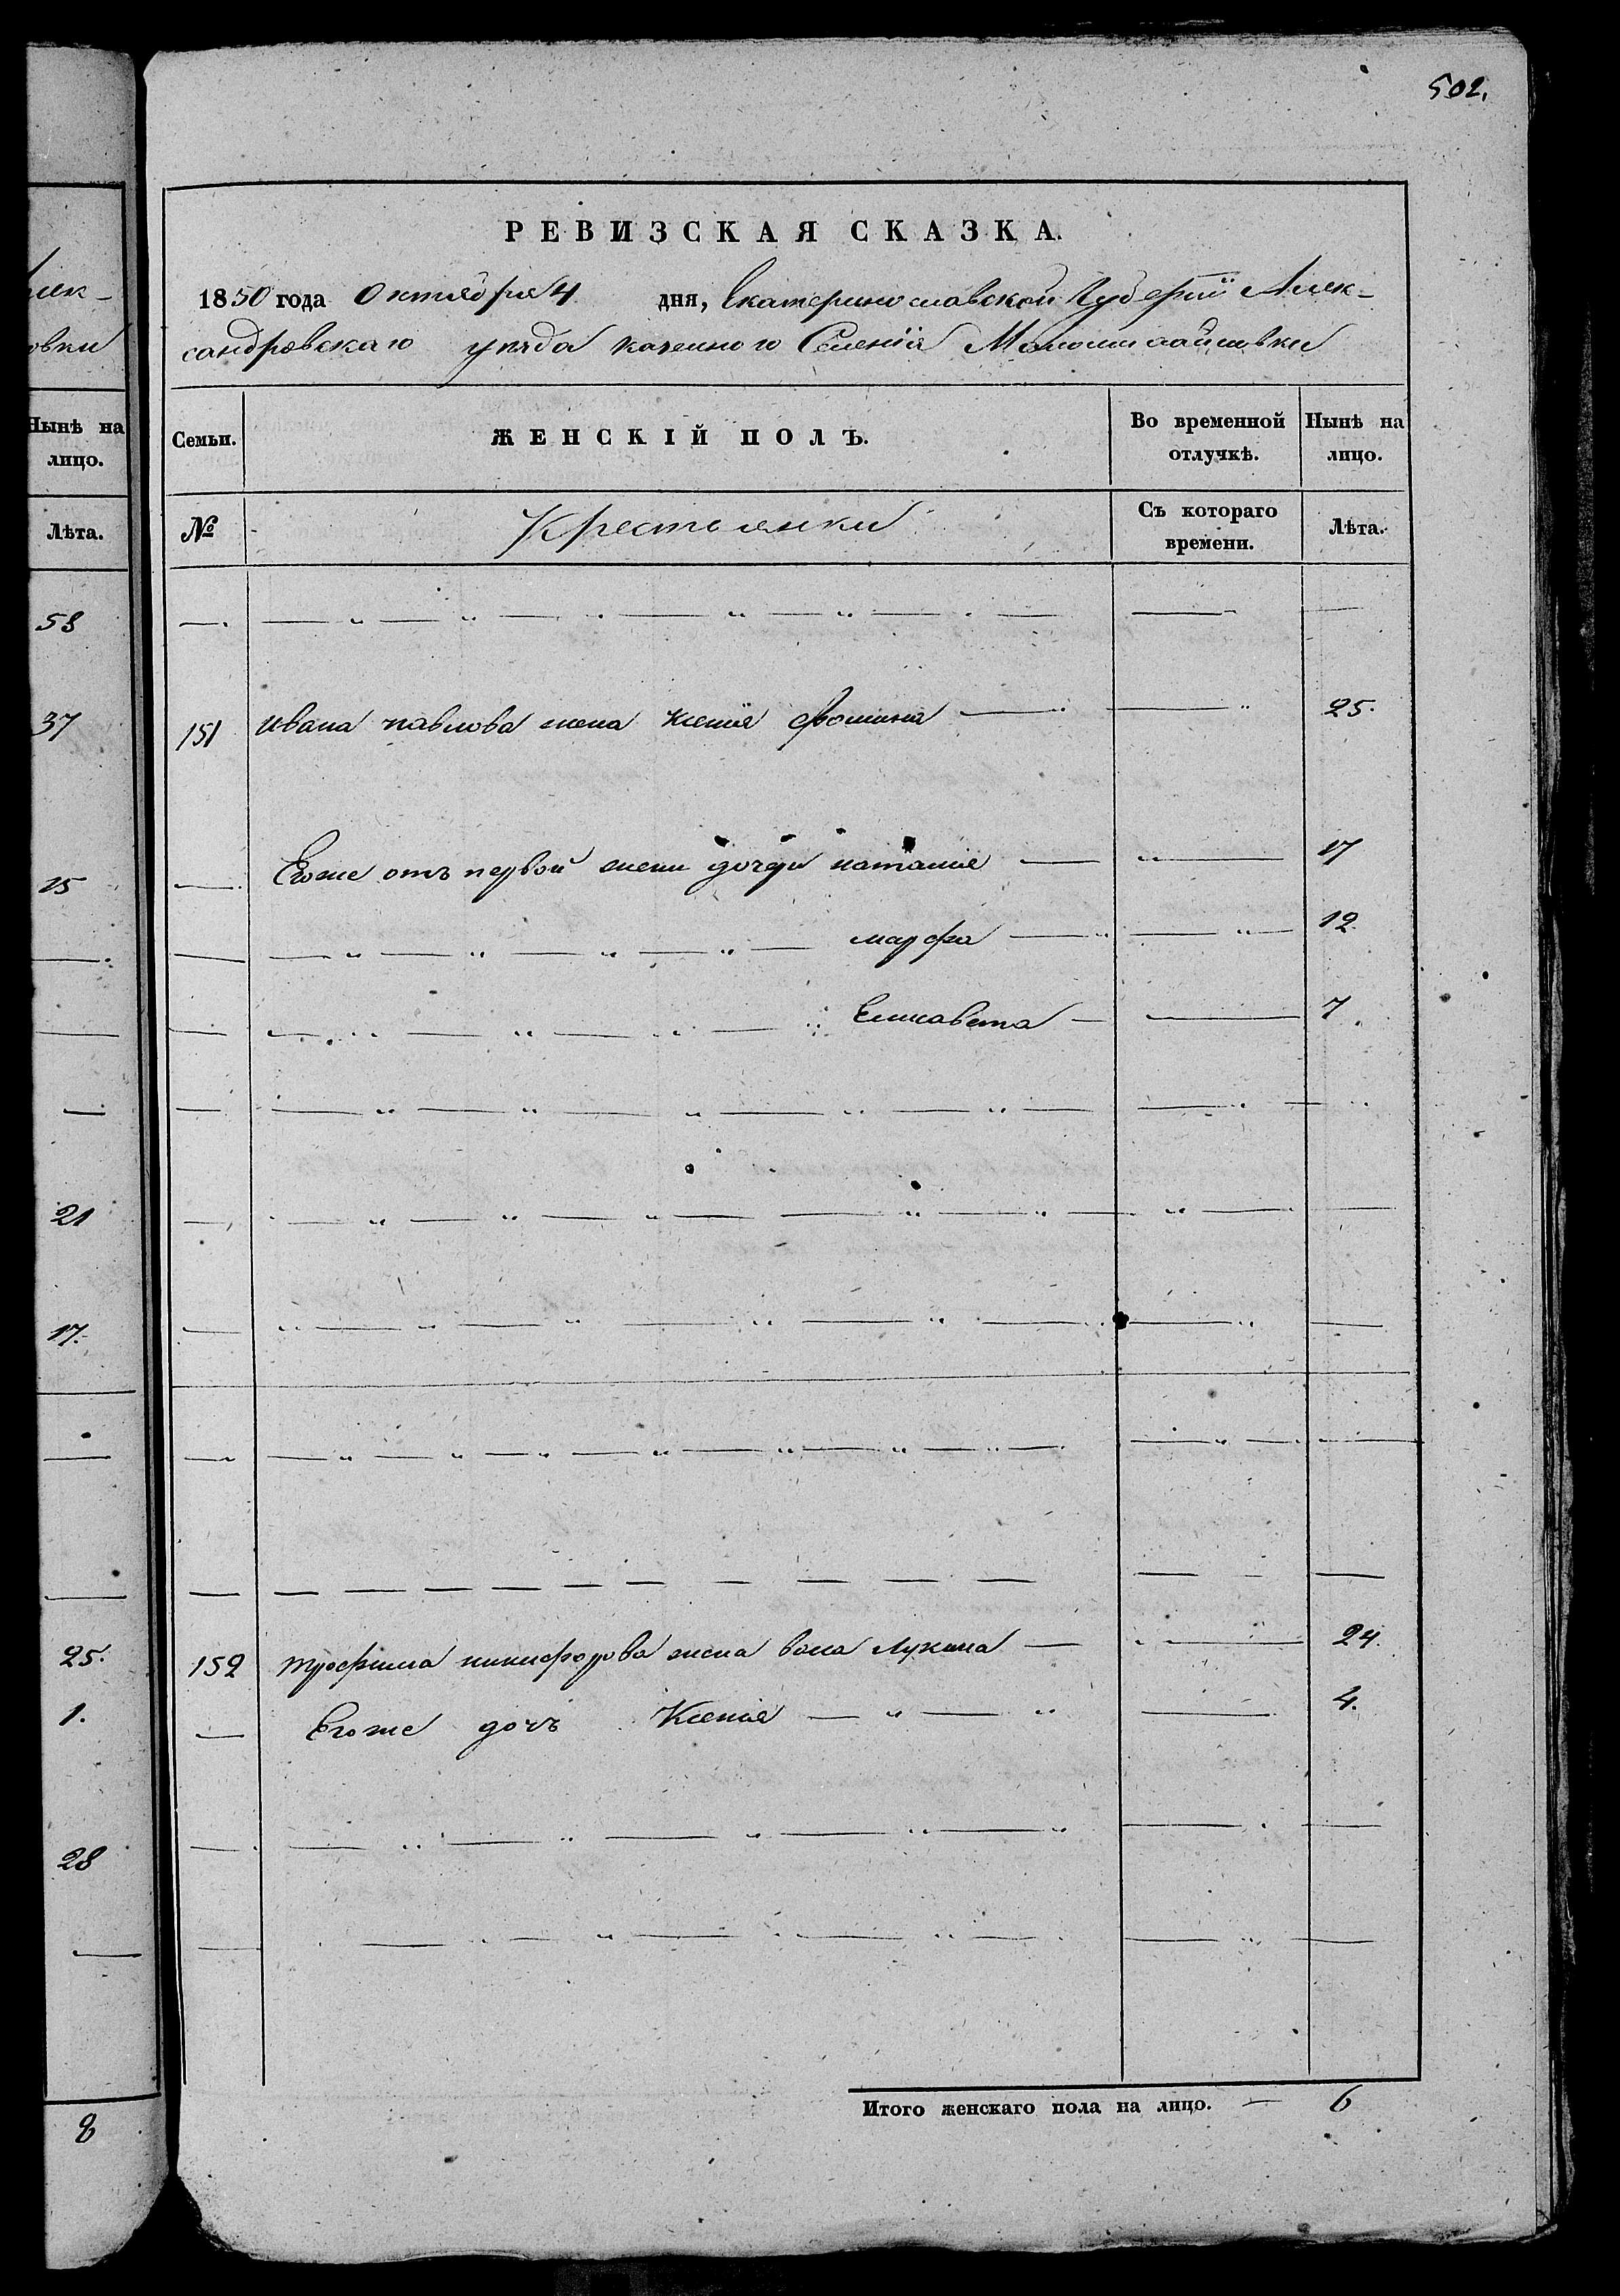 502.
РЕВИЗСКАЯ СКАЗКА.
1850 года Октября 4 дня, Екатеринославской Губернїи Алек-
сандровскаго уѣзда казенного Селенїя Маломихайловки
Семьи.
ЖЕНСКІЙ ПОЛЪ.
Во временной отлучкѣ.
Нынѣ на лицо.
№
Крестьянки
Съ котораго времени.
Лѣта.
151 Ивана павлова жена Ксенїя Фомина 25.
Егоже отъ первой жены дочери наталїя 17
марфа 12
Елисавета 7
152 трофима никифорова жена Лукина 24.
Егоже дочь Ксенїя 4.
Итого женскаго пола на лицо. — 6
лек-
овки
Нынѣ на
лицо.
Лѣта.
58
37
15
21
17.
25.
1.
28
8